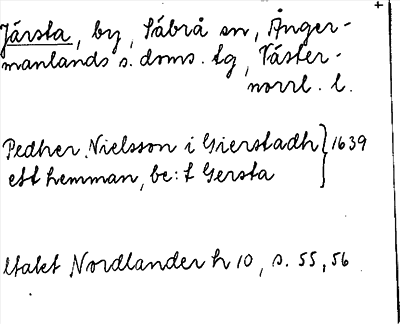 Järsta, by, Säbrå sn, Ånger-
manlands s. doms. lg, Väster-
norrl. l.
Pedher Nielsson i Gierstadh } 1639
ett hemman, be: t Gersta
Utakt Nordlander h 10, s. 55, 56